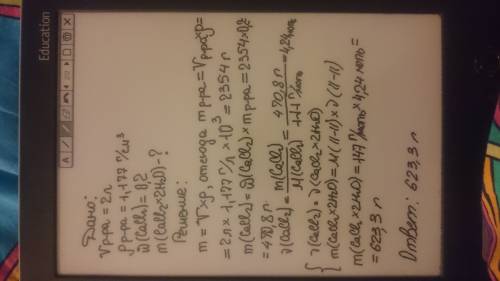 Education
Дано:
Vр-ра = 2л
ρр-ра = 1,177 г/см³
ω(CaCl₂) = 0,2
m(CaCl₂ × 2H₂O) - ?
Решение:
m = V × ρ, отсюда mр-ра = Vр-ра × ρ =
= 2л × 1,177 г/л × 10³ = 2354 г
m(CaCl₂) = ω(CaCl₂) × mр-ра = 2354 × 0,2
= 470,8 г
ν(CaCl₂) = m(CaCl₂) / M(CaCl₂) = 470,8 г / 111 г/моль = 4,24 моль
{ ν(CaCl₂) = ν(CaCl₂ × 2H₂O)
m(CaCl₂ × 2H₂O) = M(-//-) × ν(-//-)
m(CaCl₂ × 2H₂O) = 147 г/моль × 4,24 моль =
= 623,3 г
Ответ: 623,3 г